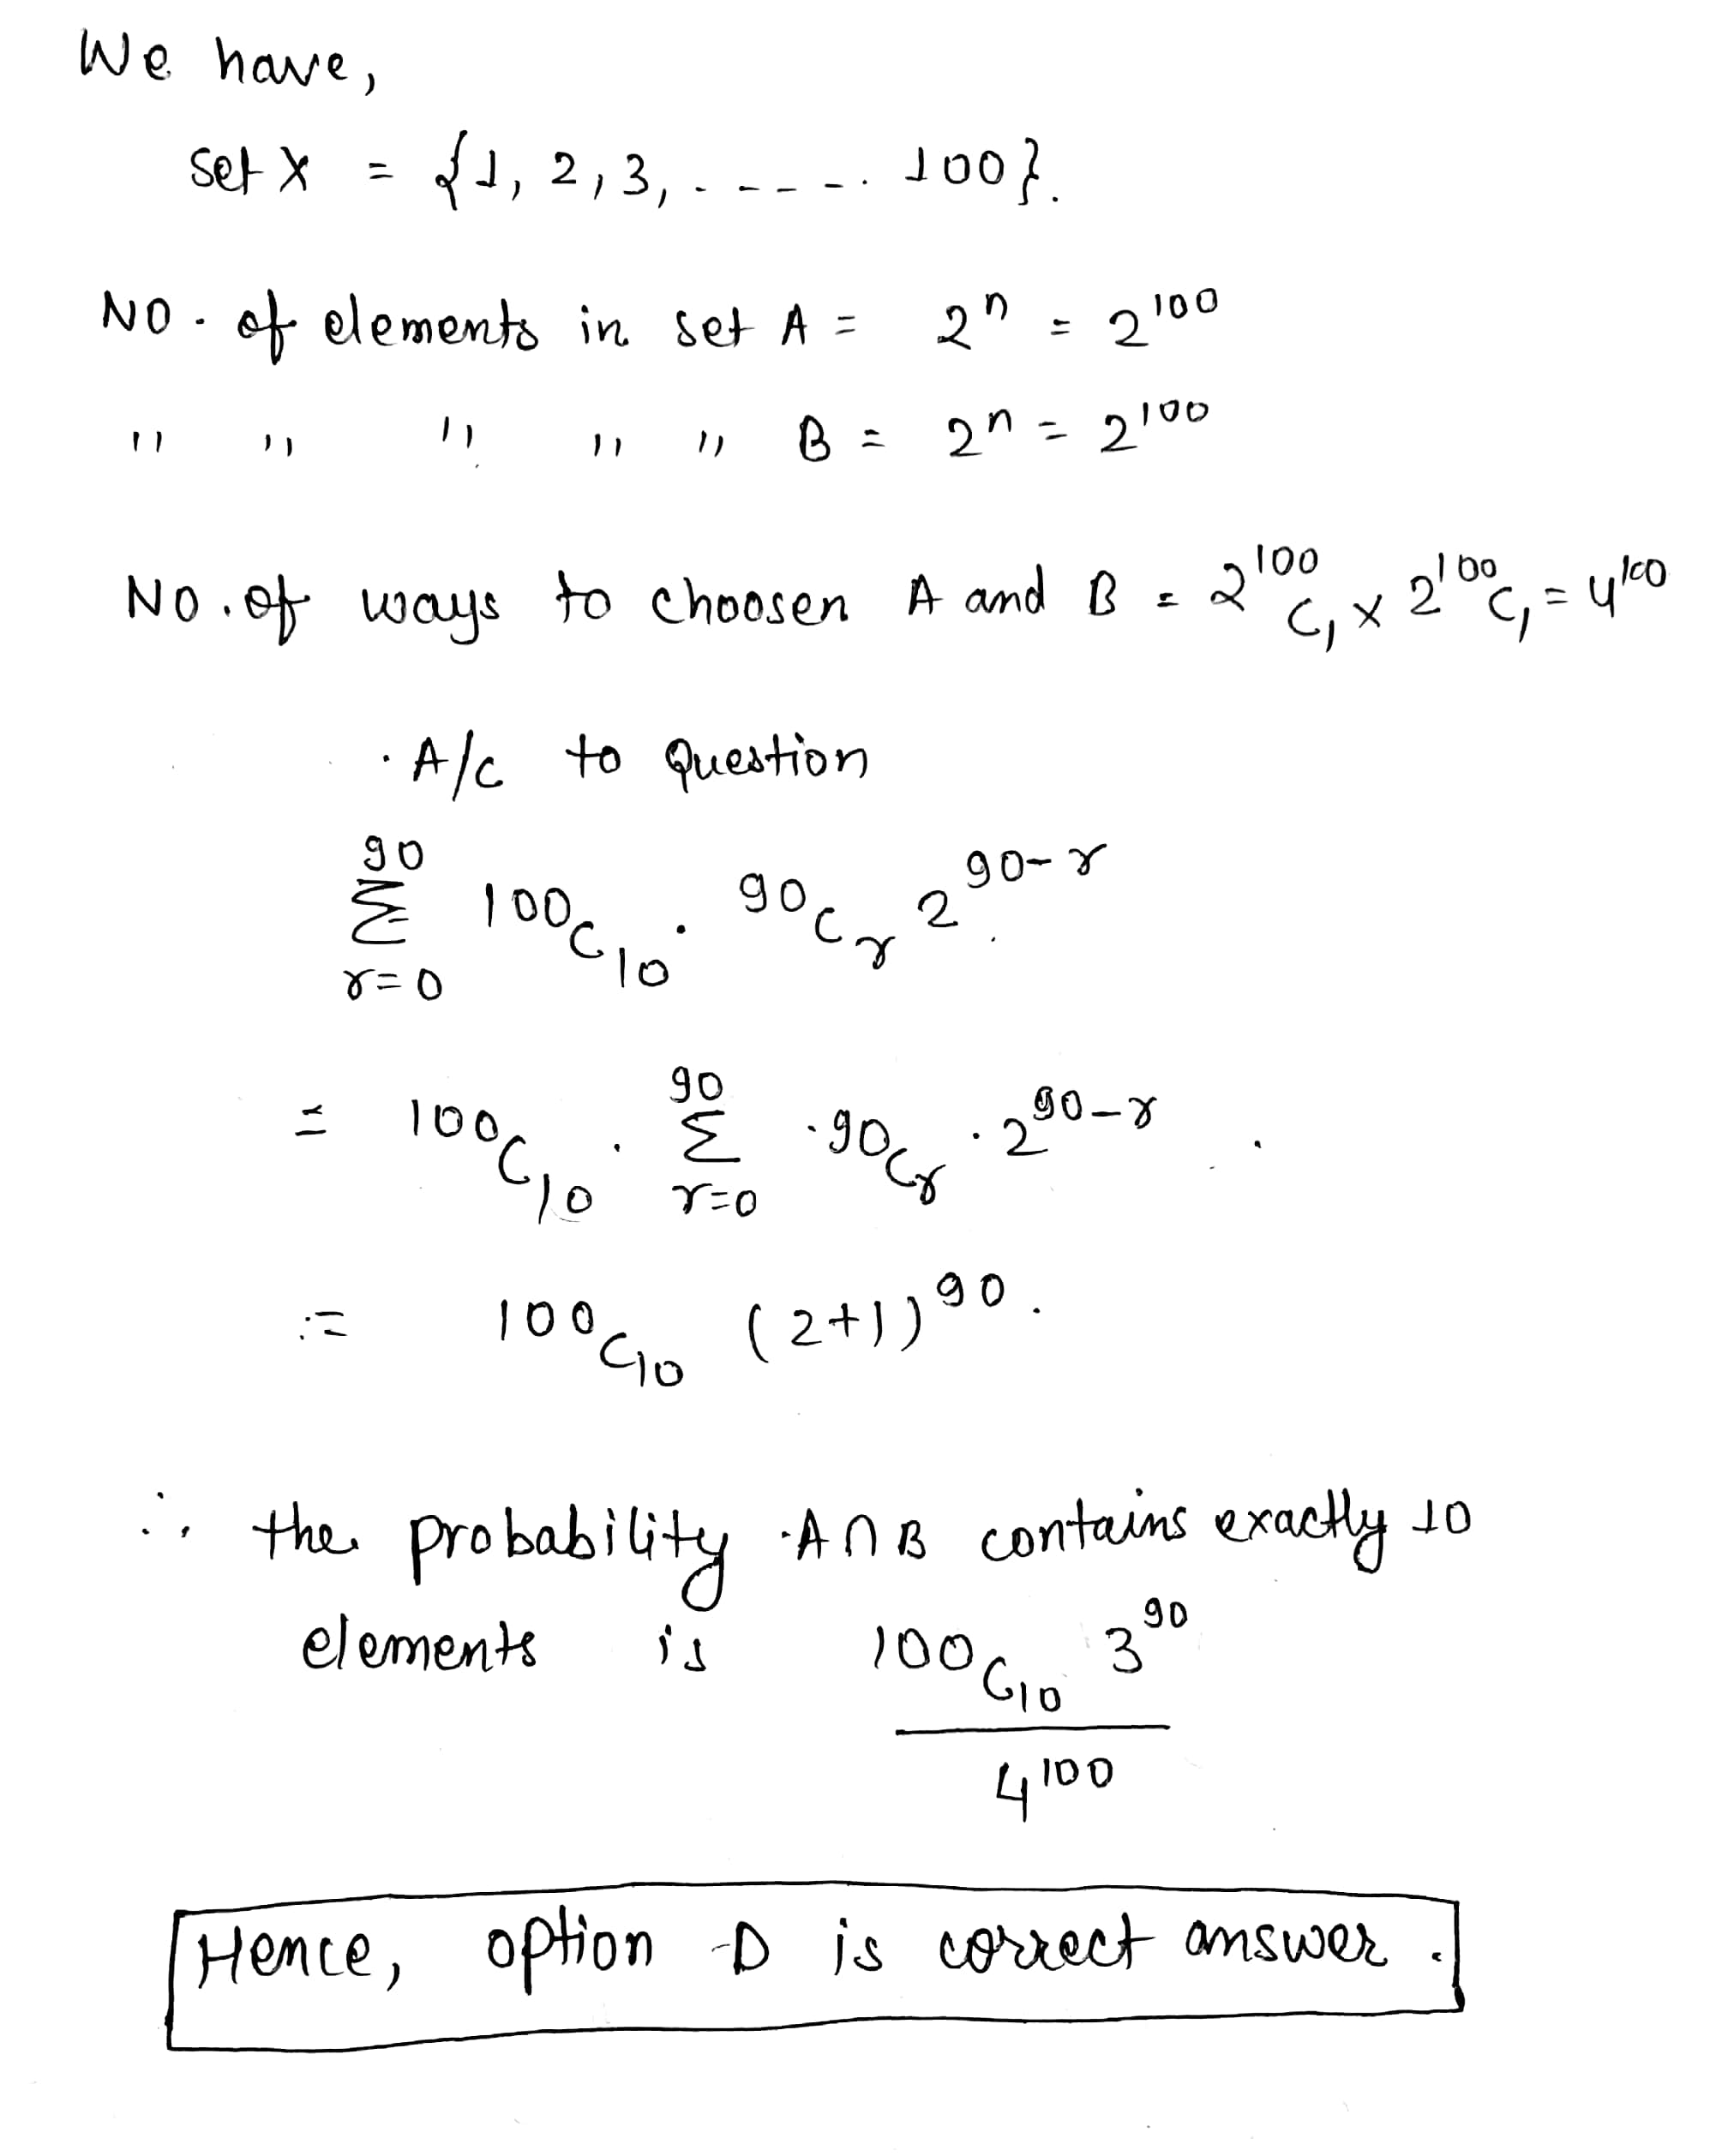 We have,
Set X = {1, 2, 3, - - - - -. 100}.
NO. of elements in set A = 2ⁿ = 2¹⁰⁰
" " " " " B = 2ⁿ = 2¹⁰⁰
No. of ways to choosen A and B = 2¹⁰⁰C₁ × 2¹⁰⁰C₁ = 4¹⁰⁰
A/c to Question
90
Σ 100C₁₀ . 90Cᵣ 2⁹⁰⁻ʳ
r=0
90
= 100C₁₀ . Σ .90Cᵣ . 2⁹⁰⁻ʳ
r=0
= 100C₁₀ (2+1)⁹⁰.
∴ the probability A∩B contains exactly 10
elements is 100C₁₀ 3⁹⁰
4¹⁰⁰
Hence, option D is correct answer.